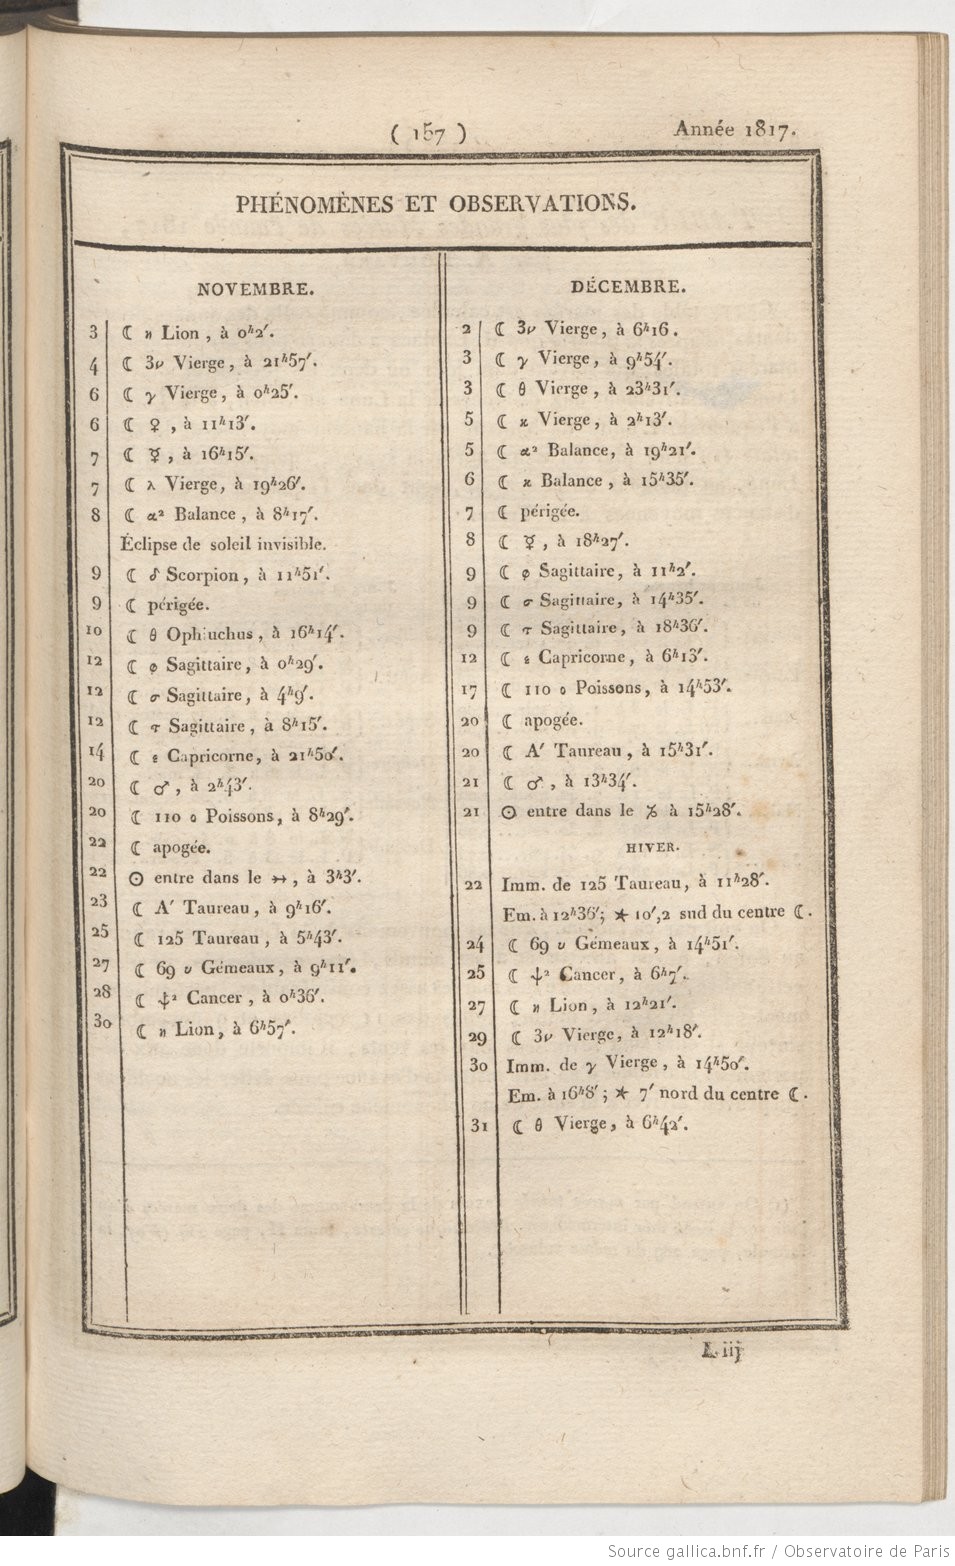 ( 157 ) Année 1817.
PHÉNOMÈNES ET OBSERVATIONS.
NOVEMBRE.
3 ☾ η Lion, à 0ʰ2′.
4 ☾ 3ν Vierge, à 21ʰ57′.
6 ☾ γ Vierge, à 0ʰ25′.
6 ☾ ♀, à 11ʰ13′.
7 ☾ ☿, à 16ʰ15′.
7 ☾ λ Vierge, à 19ʰ26′.
8 ☾ α² Balance, à 8ʰ17′.
Éclipse de soleil invisible.
9 ☾ δ Scorpion, à 11ʰ51′.
9 ☾ périgée.
10 ☾ θ Ophiuchus, à 16ʰ14′.
12 ☾ φ Sagittaire, à 0ʰ29′.
12 ☾ σ Sagittaire, à 4ʰ9′.
12 ☾ τ Sagittaire, à 8ʰ15′.
14 ☾ ε Capricorne, à 21ʰ50′.
20 ☾ ♂, à 2ʰ43′.
20 ☾ 110 ο Poissons, à 8ʰ29′.
22 ☾ apogée.
22 ☉ entre dans le ♐, à 3ʰ3′.
23 ☾ A′ Taureau, à 9ʰ16′.
25 ☾ 125 Taureau, à 5ʰ43′.
27 ☾ 69 υ Gémeaux, à 9ʰ11′.
28 ☾ ψ² Cancer, à 0ʰ36′.
30 ☾ η Lion, à 6ʰ57′.
DÉCEMBRE.
2 ☾ 3ν Vierge, à 6ʰ16.
3 ☾ γ Vierge, à 9ʰ54′.
3 ☾ θ Vierge, à 23ʰ31′.
5 ☾ κ Vierge, à 2ʰ13′.
5 ☾ α² Balance, à 19ʰ21′.
6 ☾ κ Balance, à 15ʰ35′.
7 ☾ périgée.
8 ☾ ☿, à 18ʰ27′.
9 ☾ φ Sagittaire, à 11ʰ2′.
9 ☾ σ Sagittaire, à 14ʰ35′.
9 ☾ τ Sagittaire, à 18ʰ36′.
12 ☾ ε Capricorne, à 6ʰ13′.
17 ☾ 110 ο Poissons, à 14ʰ53′.
20 ☾ apogée.
20 ☾ A′ Taureau, à 15ʰ31′.
21 ☾ ♂, à 13ʰ34′.
21 ☉ entre dans le ♑ à 15ʰ28′.
HIVER.
22 Imm. de 125 Taureau, à 11ʰ28′.
Em. à 12ʰ36′; ★ 10′,2 sud du centre ☾.
24 ☾ 69 υ Gémeaux, à 14ʰ51′.
25 ☾ ψ² Cancer, à 6ʰ7′.
27 ☾ η Lion, à 12ʰ21′.
29 ☾ 3ν Vierge, à 12ʰ18′.
30 Imm. de γ Vierge, à 14ʰ50′.
Em. à 16ʰ8′; ★ 7′ nord du centre ☾.
31 ☾ θ Vierge, à 6ʰ42′.
L iij
Source gallica.bnf.fr / Observatoire de Paris